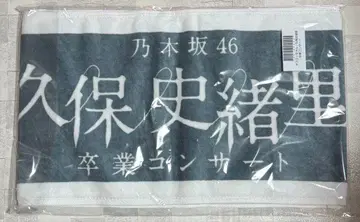 乃木坂46
久保史緒里
卒業コンサート